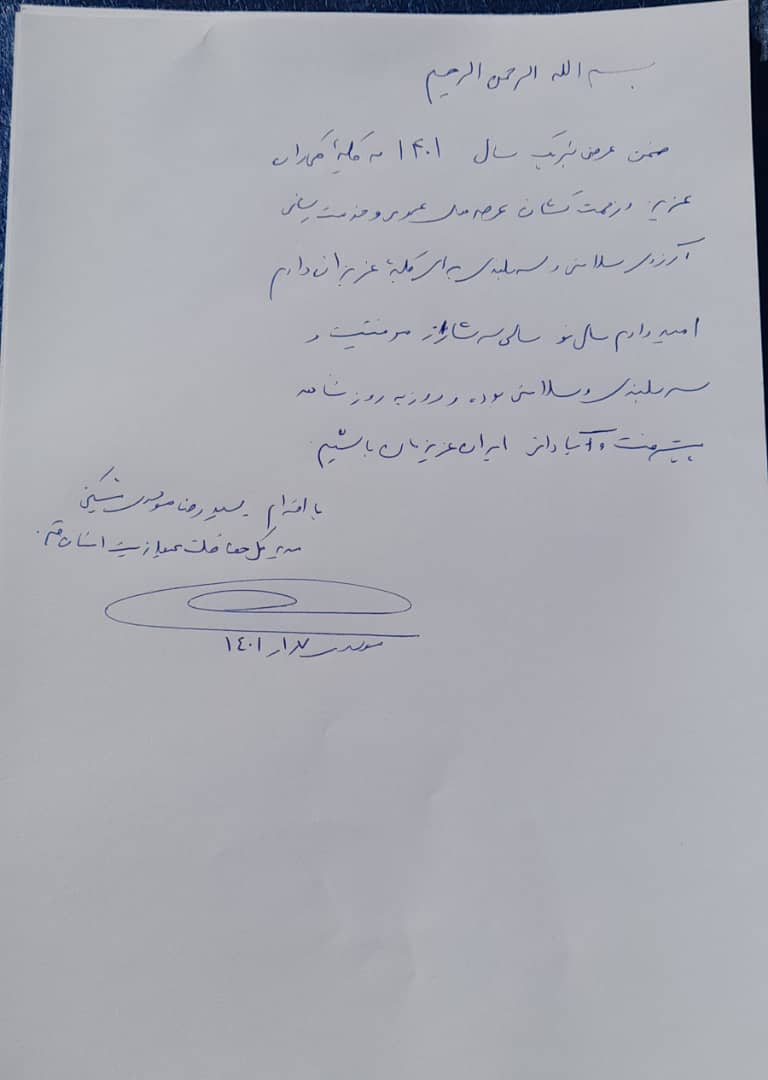 بسم الله الرحمن الرحیم
ضمن عرض تبریک سال ۱۴۰۱ به کلیهٔ همکاران
عزیز و زحمت کشان عرصه های عمومی و خدمت رسانی
آرزوی سلامتی و سربلندی برای کلیهٔ عزیزان دارم
امیدوارم سال نو سالی سرشار از موفقیت و
سربلندی و سلامتی بوده و روز به روز شاهد
پیشرفت و آبادانی ایران عزیزمان باشیم
با احترام سید رضا موسوی مشکینی
مدیر کل حفاظت محیط زیست استان قم
موسوی بهار ۱۴۰۱